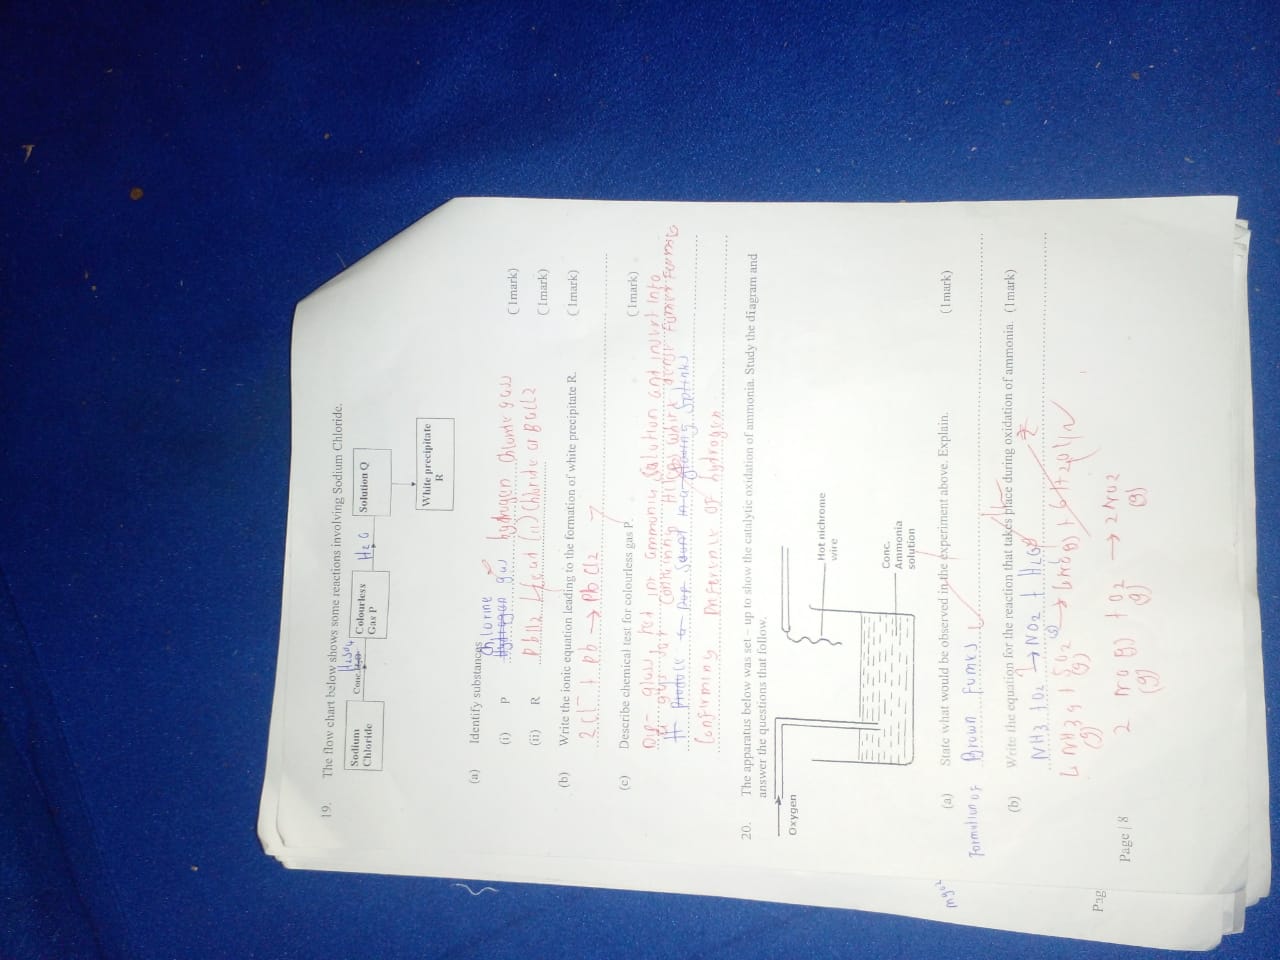 19. The flow chart below shows some reactions involving Sodium Chloride.
Sodium Chloride
Conc. H2SO4
Colourless Gas P
H2O
Solution Q
White precipitate R
(a) Identify substances
Chlorine
(i) P hydrogen gas hydrogen Chloride gas (1mark)
(ii) R PbCl2 Lead (II) Chloride or BaCl2 (1mark)
(b) Write the ionic equation leading to the formation of white precipitate R. (1mark)
2Cl- + Pb → PbCl2
(c) Describe chemical test for colourless gas P. (1mark)
Dip glass rod in ammonia Solution and insert into
gas jar containing white dense Fumes Forms
Produce a Pop Sound in a glowing Splints
Confirming Presence of hydrogen
20. The apparatus below was set – up to show the catalytic oxidation of ammonia. Study the diagram and
answer the questions that follow.
Oxygen
Hot nichrome wire
Conc. Ammonia solution
(a) State what would be observed in the experiment above. Explain. (1mark)
Formation of Brown Fumes
(b) Write the equation for the reaction that takes place during oxidation of ammonia. (1mark)
NH3 + O2 → NO2 + H2O
+ 5O2
(g)
+ O2 → 2NO2
(g) (g) (g)
Page | 8
Pag